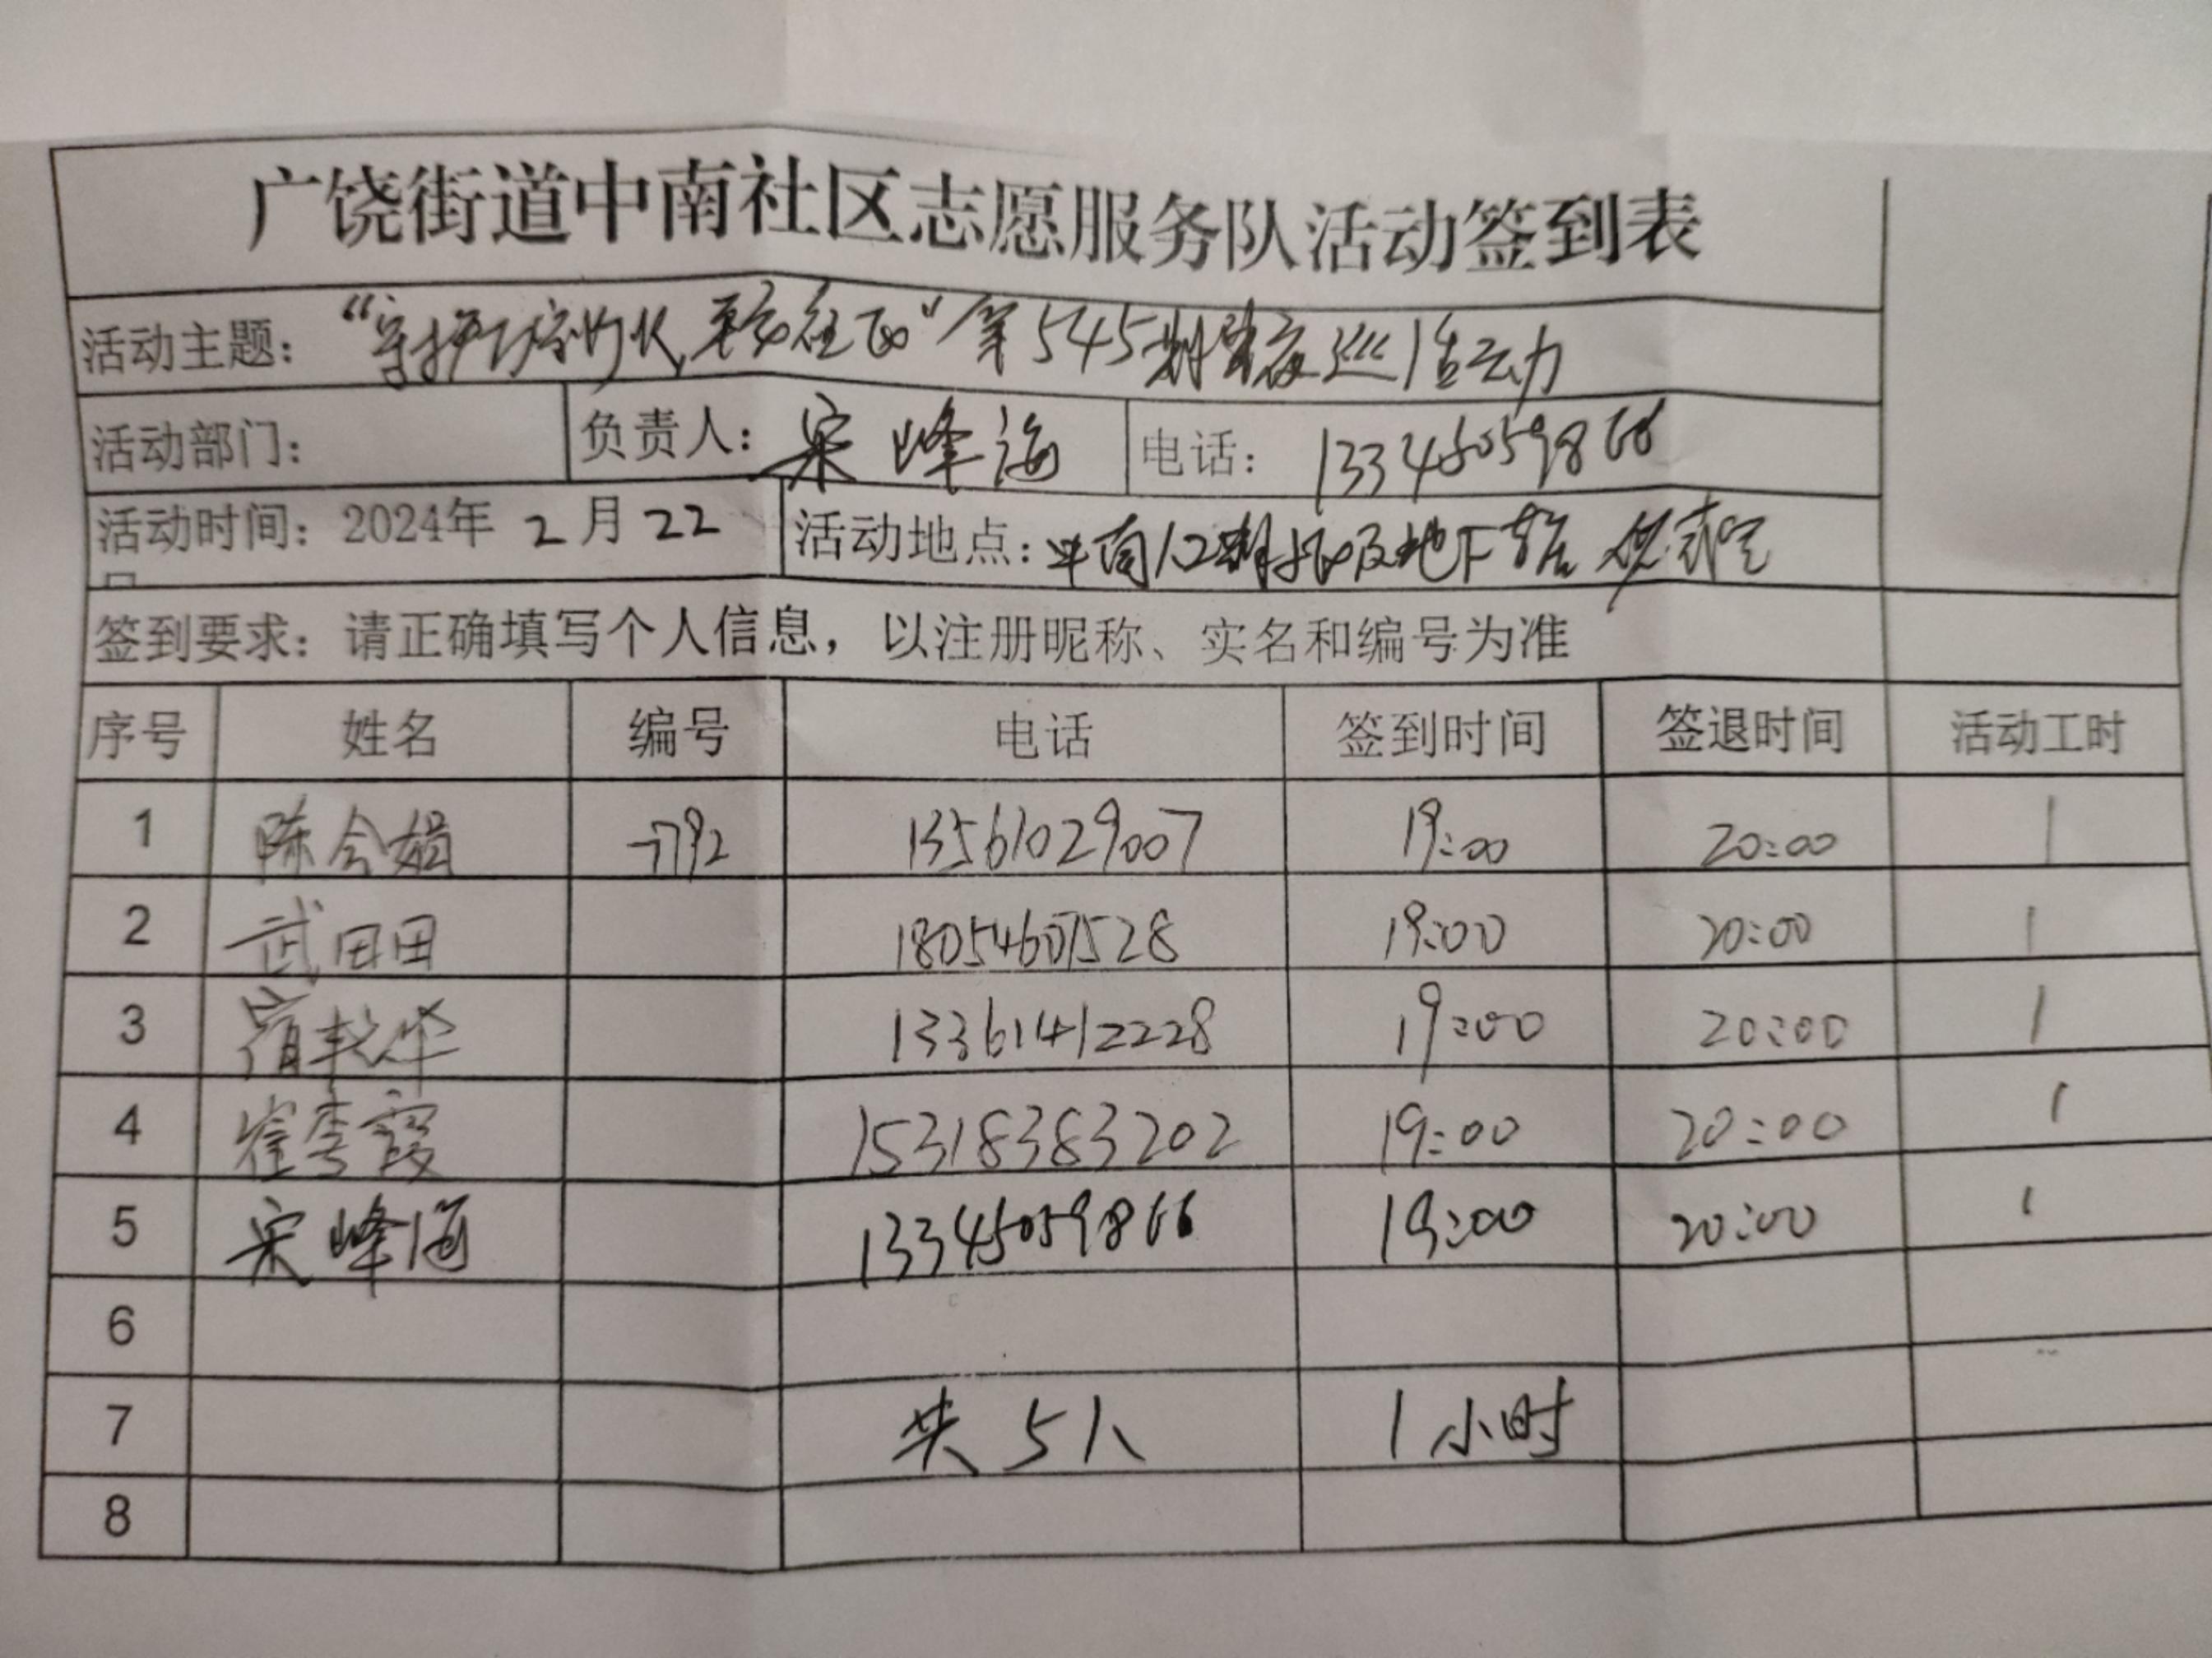 广饶街道中南社区志愿服务队活动签到表
活动主题：“守护 第545期 夜巡活动
活动部门： 负责人：宋峰海 电话：13345059866
活动时间：2024年2月22 活动地点：中南 及地下
签到要求：请正确填写个人信息，以注册昵称、实名和编号为准
序号 姓名 编号 电话 签到时间 签退时间 活动工时
1 陈令娟 -7792 13561029007 19:00 20:00 1
2 武田田 18054607528 19:00 20:00 1
3 13361412228 19:00 20:00 1
4 崔秀霞 15318383202 19:00 20:00 1
5 宋峰海 13345059866 19:00 20:00 1
6
7 共5人 1小时
8